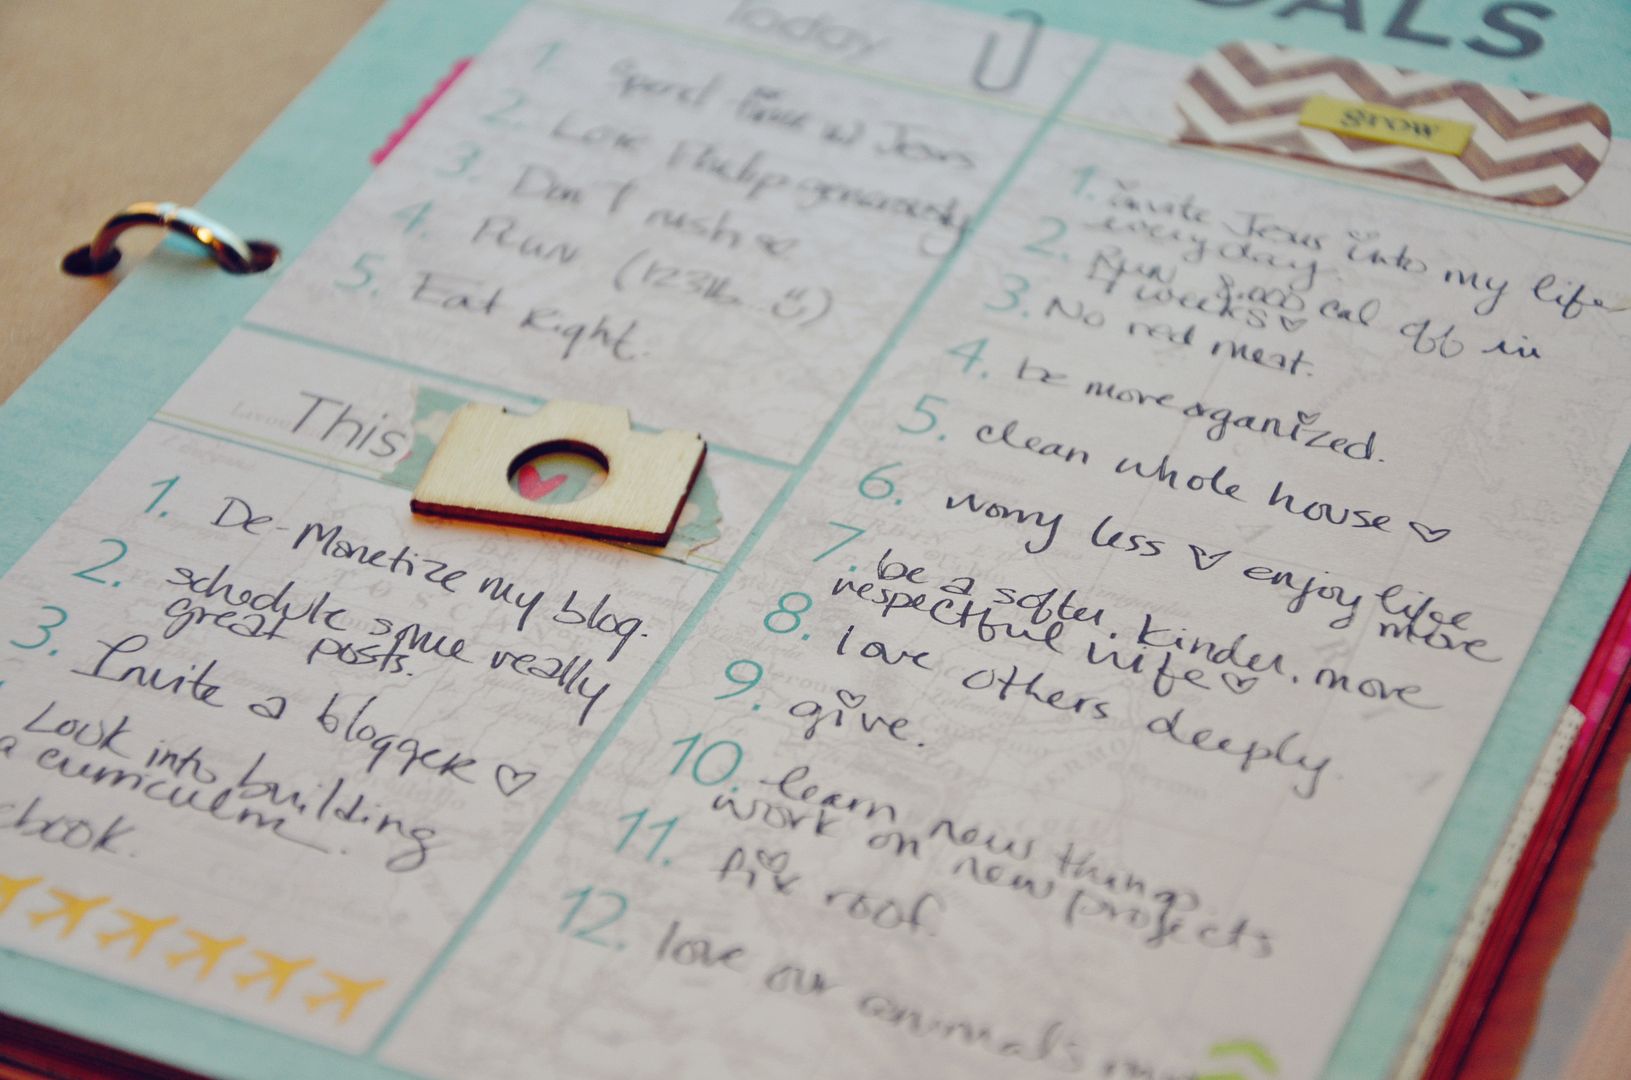 OALS
Today
1. Spend time w/ Jesus
2. Love Philip generously
3. Don't rush
4. Run (123lb.. )
5. Eat Right.
This
1. De-Monetize my blog.
2. schedule some really
great posts.
3. Invite a blogger
Look into building
a curriculm.
ebook.
grow
1. invite Jesus into my life
everyday.
2. Run 8,000 cal off in
4 weeks
3. No red meat.
4. be more organized.
5. clean whole house
6. worry less enjoy life
more
7. be a softer, kinder, more
respectful wife
8. love others deeply.
9. give.
10. learn new things
work on new projects
11. fix roof.
12. love our animals